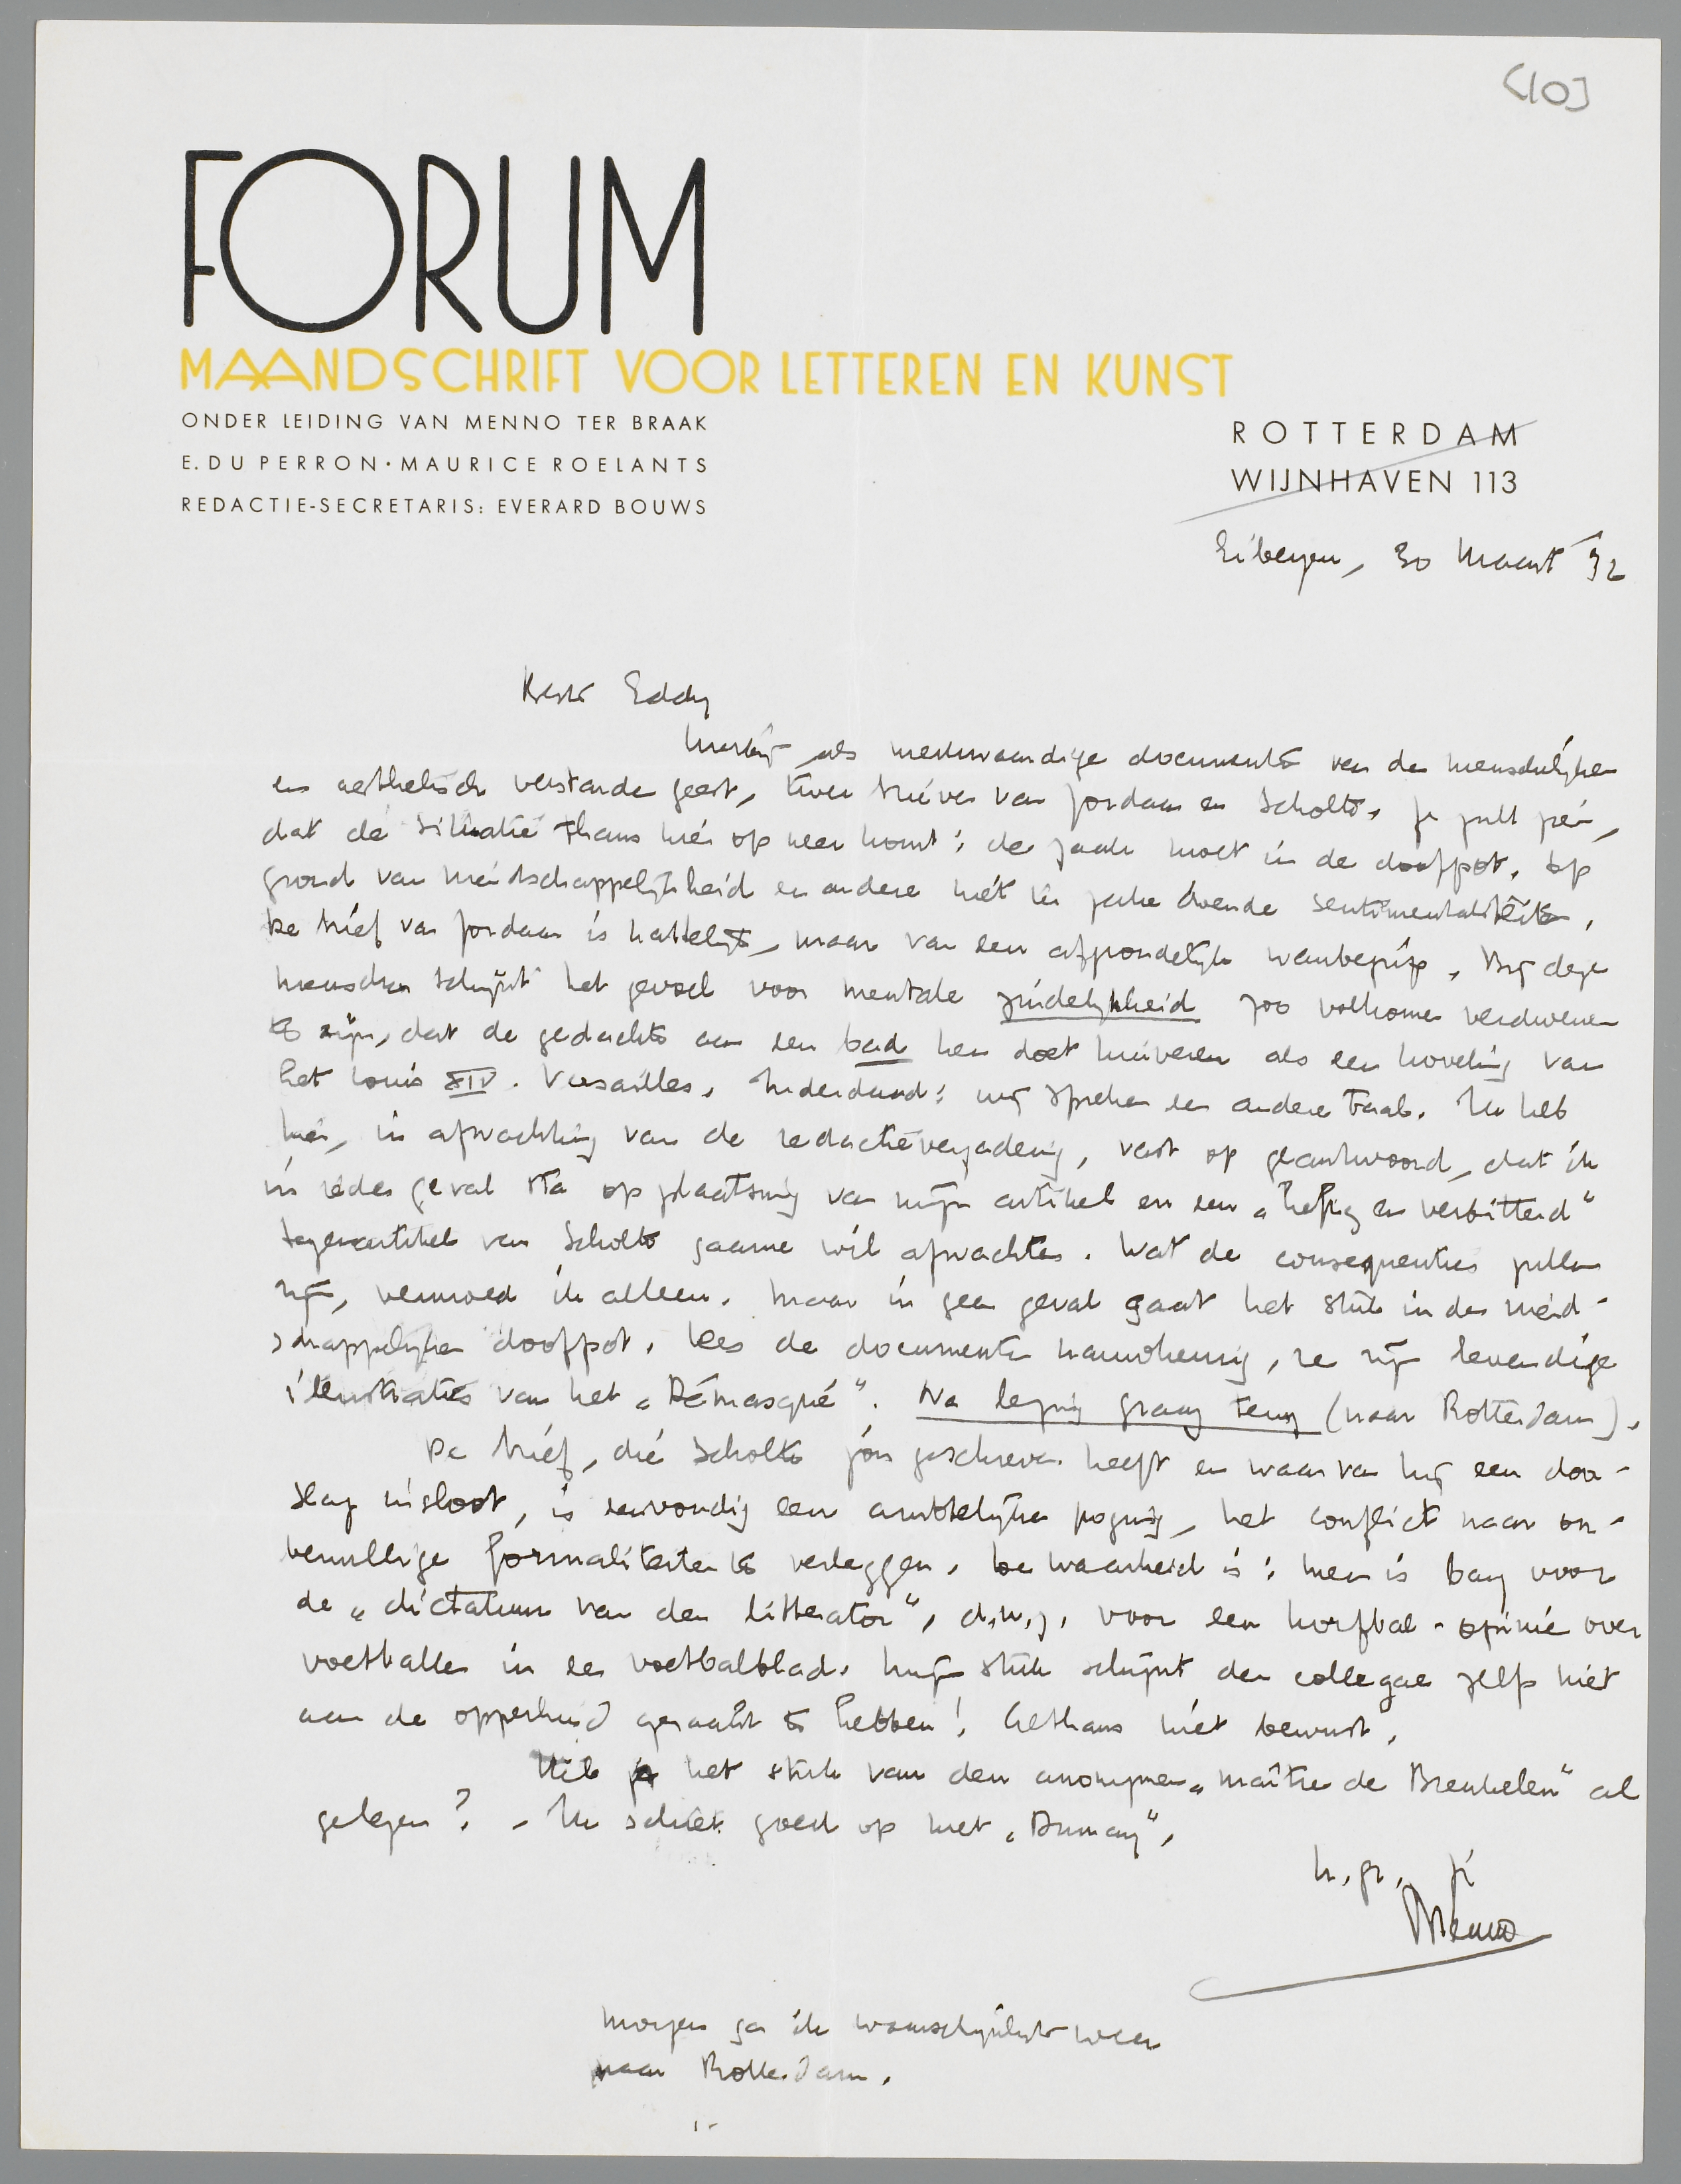 [10]
FORUM
MAANDSCHRIFT VOOR LETTEREN EN KUNST
ONDER LEIDING VAN MENNO TER BRAAK
E. DU PERRON · MAURICE ROELANTS
REDACTIE-SECRETARIS: EVERARD BOUWS
ROTTERDAM
WIJNHAVEN 113
Eibergen, 30 Maart '32
Beste Eddy
Hierbij, als merkwaardige documenten van de menschelijken
en aesthetisch verstarde geest, twee brieven van Jordaan en Scholte. Je zult zien,
dat de situatie thans hier op neer komt: de zaak moet in de doofpot, op
grond van vriendschappelijkheid en andere niet ter zake doende sentimentaliteiten.
De brief van Jordaan is hartelijk, maar van een afgrondelijk wanbegrip. Bij deze
menschen schijnt het gevoel voor mentale zindelijkheid zoo volkomen verdwenen
te zijn, dat de gedachte aan een bad hen doet huiveren als een hoveling van
het Louis XIV. Versailles. Inderdaad: wij spreken een andere taal. Ik heb
hier, in afwachting van de redactievergadering, vast op geantwoord, dat ik
in ieder geval sta op plaatsing van mijn artikel en een „heftig en verbitterd"
tegenartikel van Scholte gaarne wil afwachten. Wat de consequenties zullen
zijn, vermoed ik alleen. Maar in geen geval gaat het stuk in den vriend-
schappelijken doofpot. Lees de documenten nauwkeurig, ze zijn levendige
illustraties van het „Démasqué". Na lezing graag terug (naar Rotterdam).
De brief, die Scholte jóu geschreven heeft en waarvan hij een door-
slag insloot, is eenvoudig een ambtelijke poging, het conflict naar on-
benullige formaliteiten te verleggen. De waarheid is: men is bang voor
de „dictatuur van den litterator", d.w.z. voor een korfbal-opinie over
voetballen in een voetbalblad. Mijn stuk schijnt den collegae zelfs niet
aan de opperhuid geraakt te hebben! Althans niet bewust.
Heb je het stuk van den anonymen „maître de Breukelen" al
gelezen? - Ik schiet goed op met „Dumay".
h. gr., je
Menno
Morgen ga ik waarschijnlijk weer
naar Rotterdam.